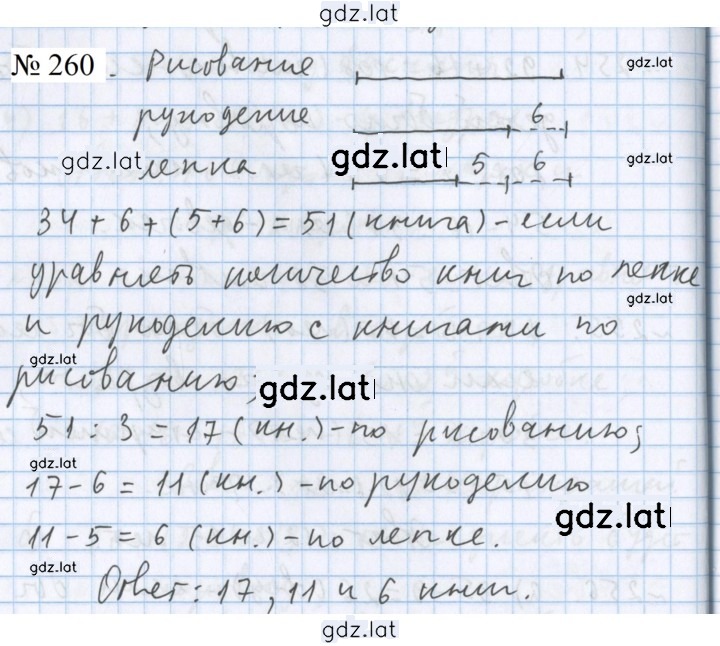 gdz.lat
№ 260. Рисование
gdz.lat
рукоделие 6
gdz.lat gdz.lat gdz.lat
лепка 5 6
34 + 6 + (5 + 6) = 51 (книга) - если
уравнять количество книг по лепке
gdz.lat
и рукоделию с книгами по
gdz.lat
рисованию;
gdz.lat
51 : 3 = 17 (кн.) - по рисованию;
gdz.lat
17 - 6 = 11 (кн.) - по рукоделию
gdz.lat
11 - 5 = 6 (кн.) - по лепке.
gdz.lat
Ответ: 17, 11 и 6 книг.
gdz.lat